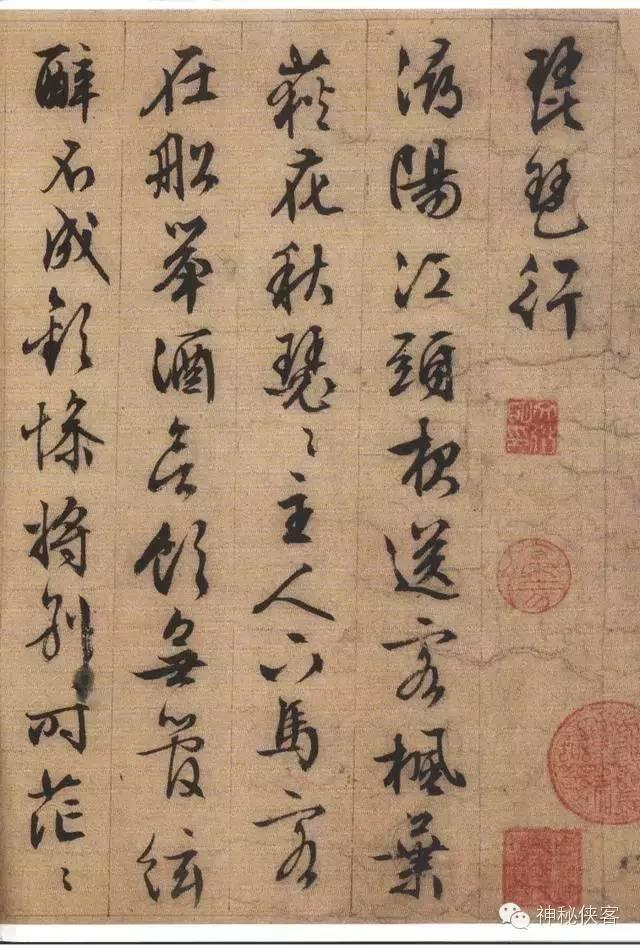 琵琶行
潯陽江頭夜送客楓葉
荻花秋瑟〻主人下馬客
在船舉酒欲飲無管絃
醉不成歡慘將別時茫〻
神秘侠客